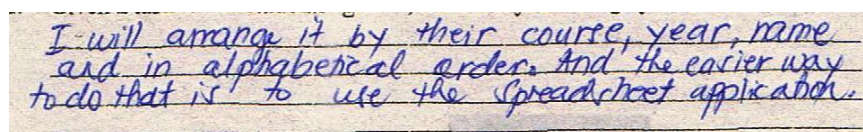 I will arrange it by their course, year, name
and in alphabetical order. And the easier way
to do that is to use the Spreadsheet application.